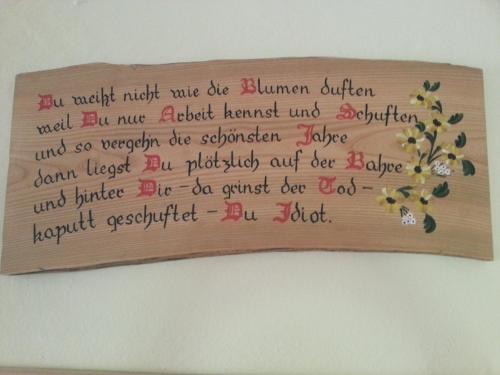 Du weißt nicht wie die Blumen duften
weil Du nur Arbeit kennst und Schuften
und so vergehn die schönsten Jahre
dann liegst Du plötzlich auf der Bahre
und hinter Dir - da grinst der Tod -
kaputt geschuftet - Du Idiot.